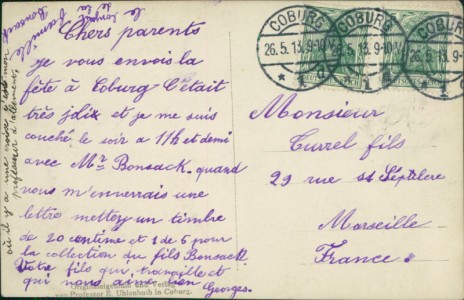 le
consul
de la
famille
Bonsack
Chers parents
je vous envois la
fête à Coburg C'était
très joli et je me suis
couché le soir a 11h et demi
avec Mr Bonsack. quand
vous m'enverrais une
lettre mettez un timbre
de 20 centime et 1 de 5 pour
la collection du fils Bonsack
Votre fils qui travaille et
qui vous aime bien
Georges.
où il y a une croix c'est mon
professeur d'allemand
COBURG
26.5.13.9-10V.
* 1 c
COBURG
26.5.13.9-10V.
* 1
Monsieur
Currel fils
29 rue st Sépulcre
Marseille
France
Professor E. Uhlenhuth in Coburg.